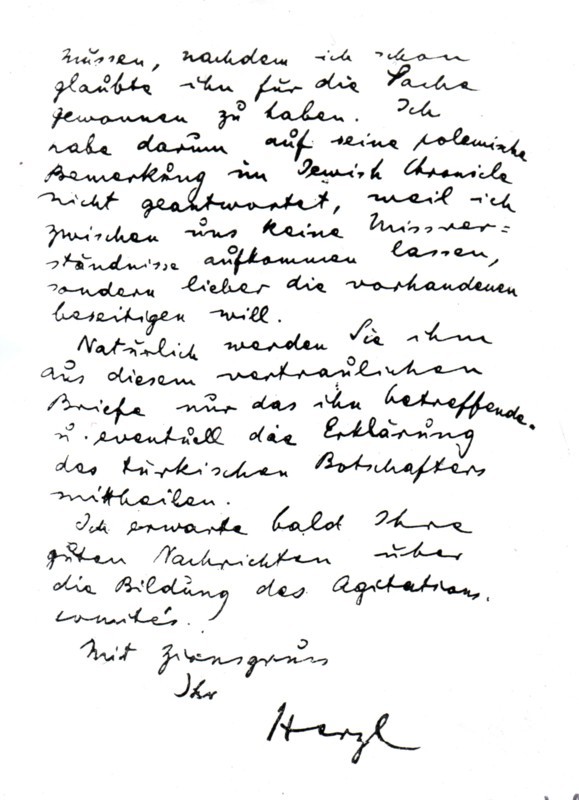 müssen, nachdem ich schon
glaubte ihn für die Sache
gewonnen zu haben. Ich
habe darum auf seine polemische
Bemerkung im Jewish Chronicle
nicht geantwortet, weil ich
zwischen uns keine Missver=
ständnisse aufkommen lassen,
sondern lieber die vorhandenen
beseitigen will.
Natürlich werden Sie ihm
aus diesem vertraulichen
Briefe nur das ihn betreffende.
u. eventuell die Erklärung
des türkischen Botschafters
mittheilen.
Ich erwarte bald Ihre
guten Nachrichten über
die Bildung des Agitations.
comités.
Mit Zionsgruss
Ihr
Herzl